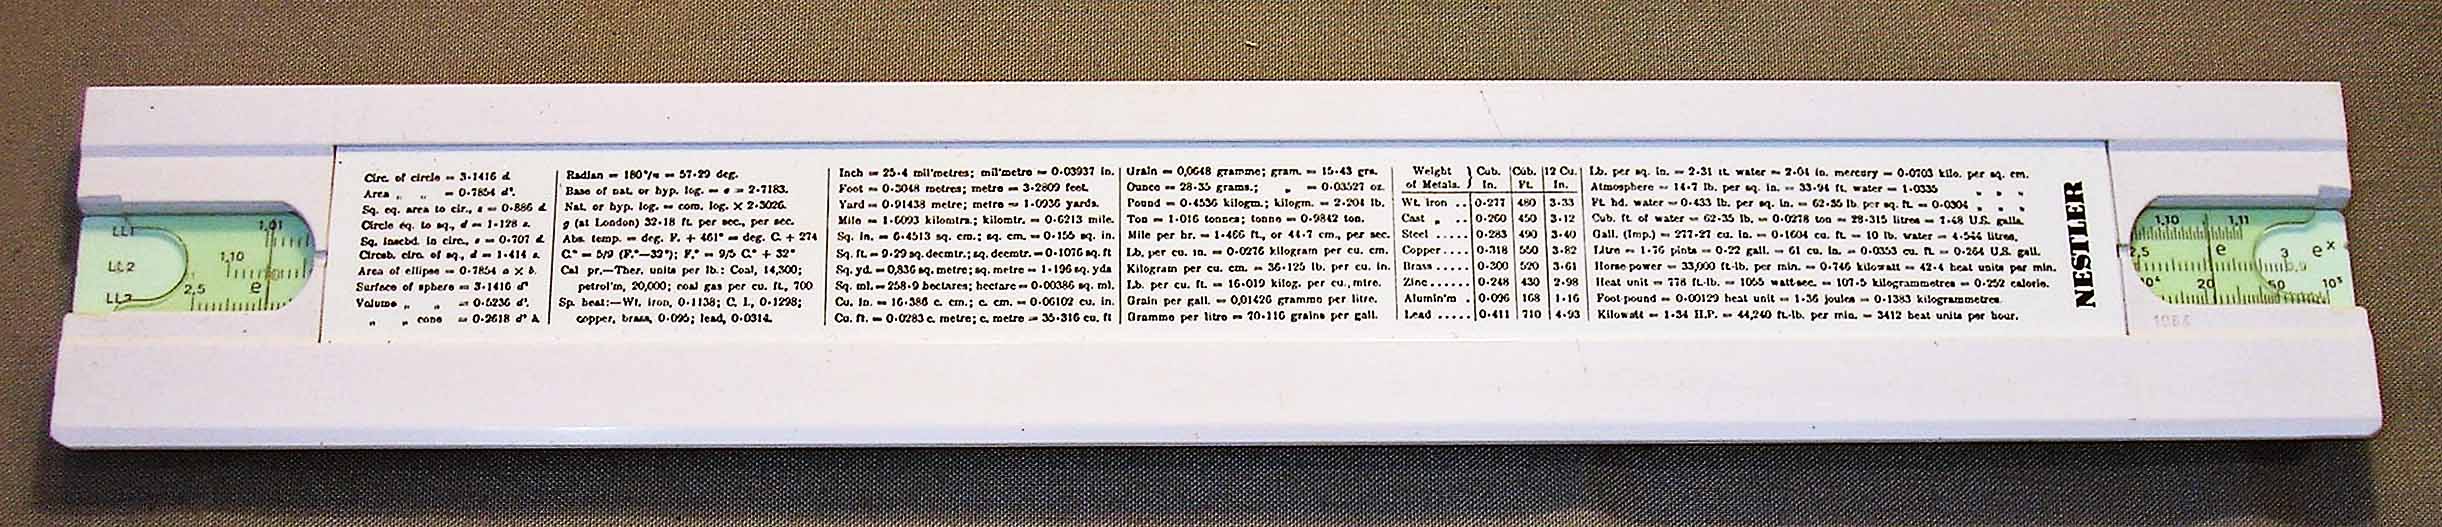 LL1
1,01
LL2
1,10
LL3
2,5
e
Circ. of circle = 3·1416 d.
Area „ „ = 0·7854 d².
Sq. eq. area to cir., s = 0·886 d.
Circle eq. to sq., d = 1·128 s.
Sq. inscbd. in circ., s = 0·707 d.
Circsb. circ. of sq., d = 1·414 s.
Area of ellipse = 0·7854 a × b.
Surface of sphere = 3·1416 d²
Volume „ „ = 0·5236 d³.
„ „ cone = 0·2618 d² h.
Radian = 180°/π = 57·29 deg.
Base of nat. or hyp. log. = e = 2·7183.
Nat. or hyp. log. = com. log. × 2·3026.
g (at London) 32·18 ft. per sec., per sec.
Abs. temp. = deg. F. + 461° = deg. C. + 274
C.° = 5/9 (F.°—32°); F.° = 9/5 C.° + 32°
Cal pr.—Ther. units per lb.: Coal, 14,300;
petrol'm, 20,000; coal gas per cu. ft., 700
Sp. heat:—Wt. iron, 0·1138; C. I., 0·1298;
copper, brass, 0·095; lead, 0·0314.
Inch = 25·4 mil'metres; mil'metre = 0·03937 in.
Foot = 0·3048 metres; metre = 3·2809 feet.
Yard = 0·91438 metre; metre = 1·0936 yards.
Mile = 1·6093 kilomtrs.; kilomtr. = 0·6213 mile.
Sq. in. = 6·4513 sq. cm.; sq. cm. = 0·155 sq. in.
Sq. ft. = 9·29 sq. decmtr.; sq. decmtr. = 0·1076 sq. ft
Sq. yd. = 0,836 sq. metre; sq. metre = 1·196 sq. yds
Sq. ml. = 258·9 hectares; hectare = 0·00386 sq. ml.
Cu. in. = 16·386 c. cm.; c. cm. = 0·06102 cu. in.
Cu. ft. = 0·0283 c. metre; c. metre = 35·316 cu. ft
Grain = 0,0648 gramme; gram. = 15·43 grs.
Ounce = 28·35 grams.; „ = 0·03527 oz.
Pound = 0·4536 kilogm.; kilogm. = 2·204 lb.
Ton = 1·016 tonnes; tonne = 0·9842 ton.
Mile per hr. = 1·466 ft., or 44·7 cm., per sec.
Lb. per cu. in. = 0·0276 kilogram per cu. cm.
Kilogram per cu. cm. = 36·125 lb. per cu. in.
Lb. per cu. ft = 16·019 kilog. per cu., mtre.
Grain per gall. = 0,01426 gramme per litre.
Gramme per litre = 70·116 grains per gall.
Weight of Metals. } Cub. In. Cub. Ft. 12 Cu. In.
Wt. iron .. 0·277 480 3·33
Cast „ .. 0·260 450 3·12
Steel ..... 0·283 490 3·40
Copper.... 0·318 550 3·82
Brass..... 0·300 520 3·61
Zinc...... 0·248 430 2·98
Alumin'm . 0·096 168 1·16
Lead ..... 0·411 710 4·93
Lb. per sq. in. = 2·31 ft. water = 2·04 in. mercury = 0·0703 kilo. per sq. cm.
Atmosphere = 14·7 lb. per sq. in. = 33·94 ft. water = 1·0335 „ „ „
Ft. hd. water = 0·433 lb. per sq. in. = 62·35 lb. per sq. ft. = 0·0304 „ „ „
Cub. ft. of water = 62·35 lb. = 0·0278 ton = 28·315 litres = 7·48 U.S. galls.
Gall. (Imp.) = 277·27 cu. in. = 0·1604 cu. ft. = 10 lb. water = 4·544 litres.
Litre = 1·76 pints = 0·22 gall. = 61 cu. in. = 0·0353 cu. ft. = 0·264 U.S. gall.
Horse power = 33,000 ft-lb. per min. = 0·746 kilowatt = 42·4 heat units per min.
Heat unit = 778 ft-lb. = 1055 watt-sec. = 107·5 kilogrammetres = 0·252 calorie.
Foot-pound = 0·00129 heat unit = 1·36 joules = 0·1383 kilogrammetres.
Kilowatt = 1·34 H.P. = 44,240 ft-lb. per min. = 3412 heat units per hour.
NESTLER
1,10 1,11
2,5 e 3 eˣ
20 50 10⁵